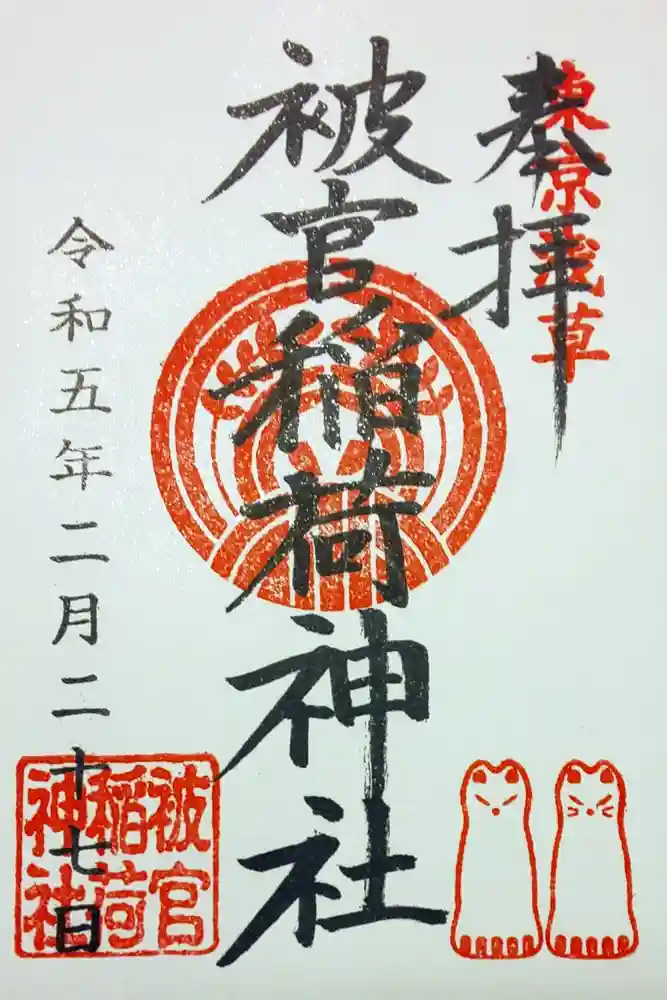 奉拝
東京浅草
被官稲荷神社
令和五年二月二十七日
被官
稲荷
神社